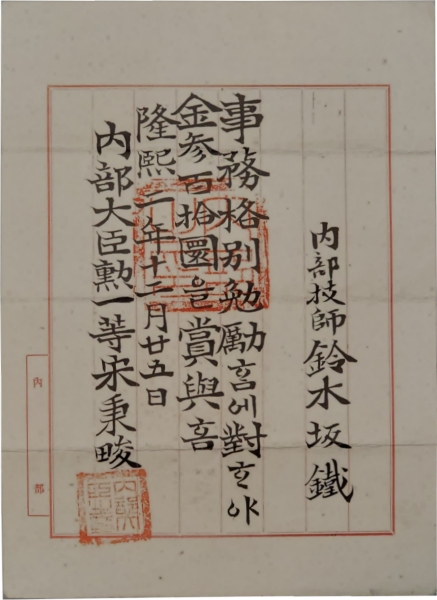 內部技師 鈴木坂鐵
事務格別勉勵홈에對ᄒᆞ야
金參百拾圜을賞與홈
隆熙二年十二月廿五日
內部大臣勳一等宋秉畯
內部